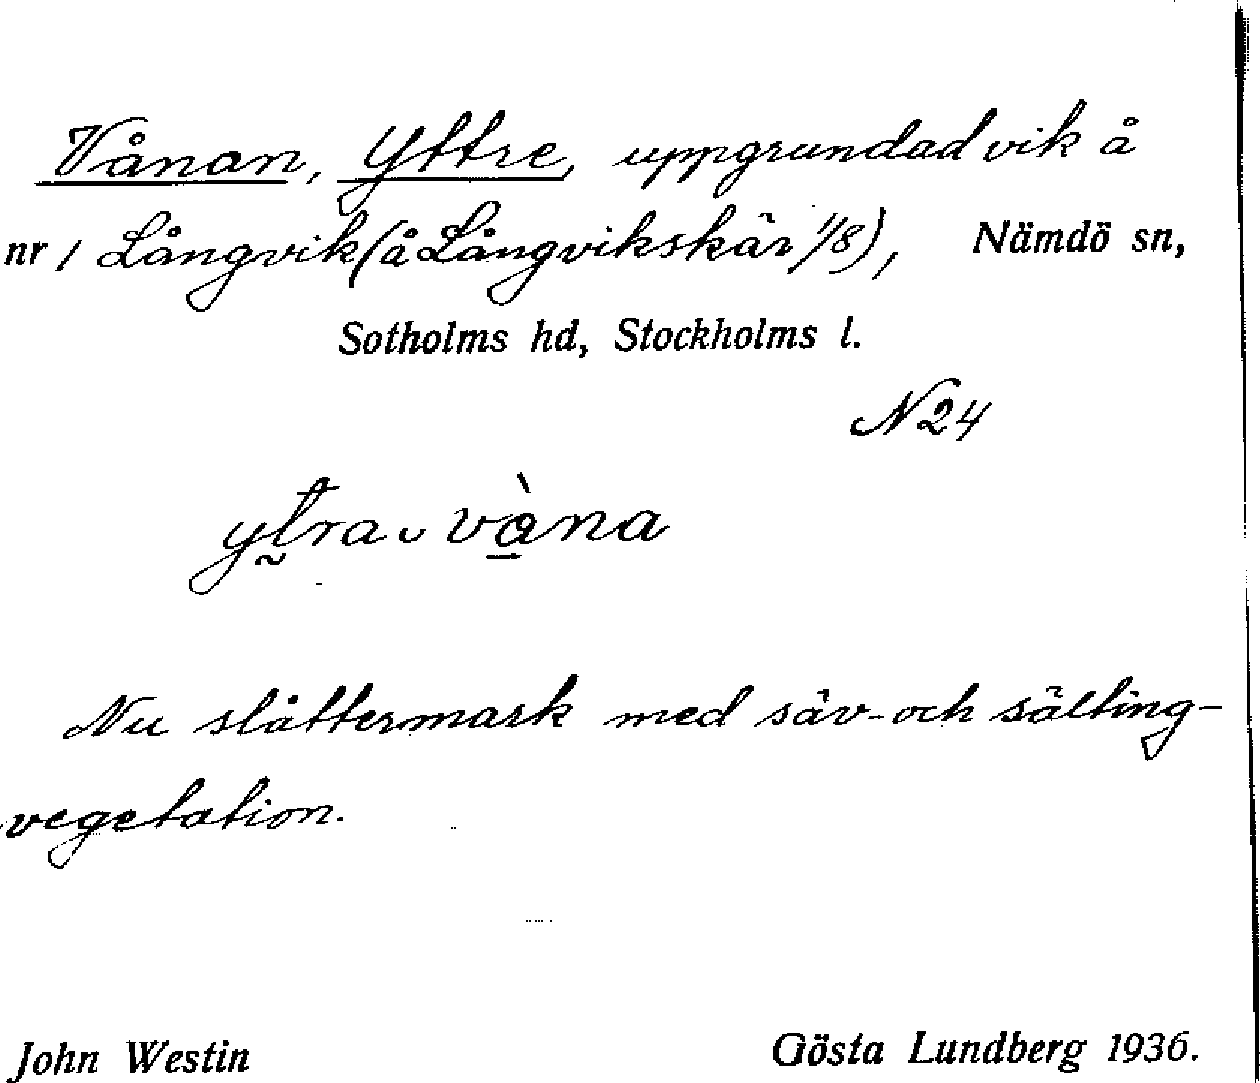 Vånan, Yttre, uppgrundad vik å
nr 1 Långvik (å Långvikskär 1/8), Nämdö sn,
Sotholms hd, Stockholms l.
N 24
ytra ᴗ vå̀na
Nu slåttermark med säv- och sälting-
vegetation.
John Westin Gösta Lundberg 1936.